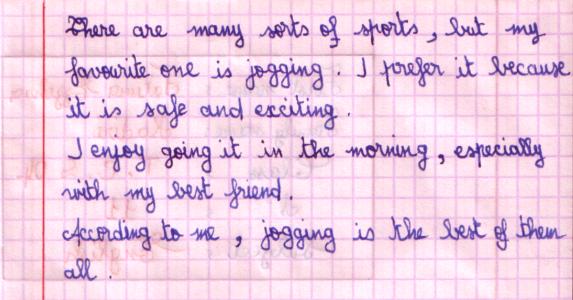 There are many sorts of sports, but my
favourite one is jogging. I prefer it because
it is safe and exciting.
I enjoy going it in the morning, especially
with my best friend.
According to me, jogging is the best of them
all.